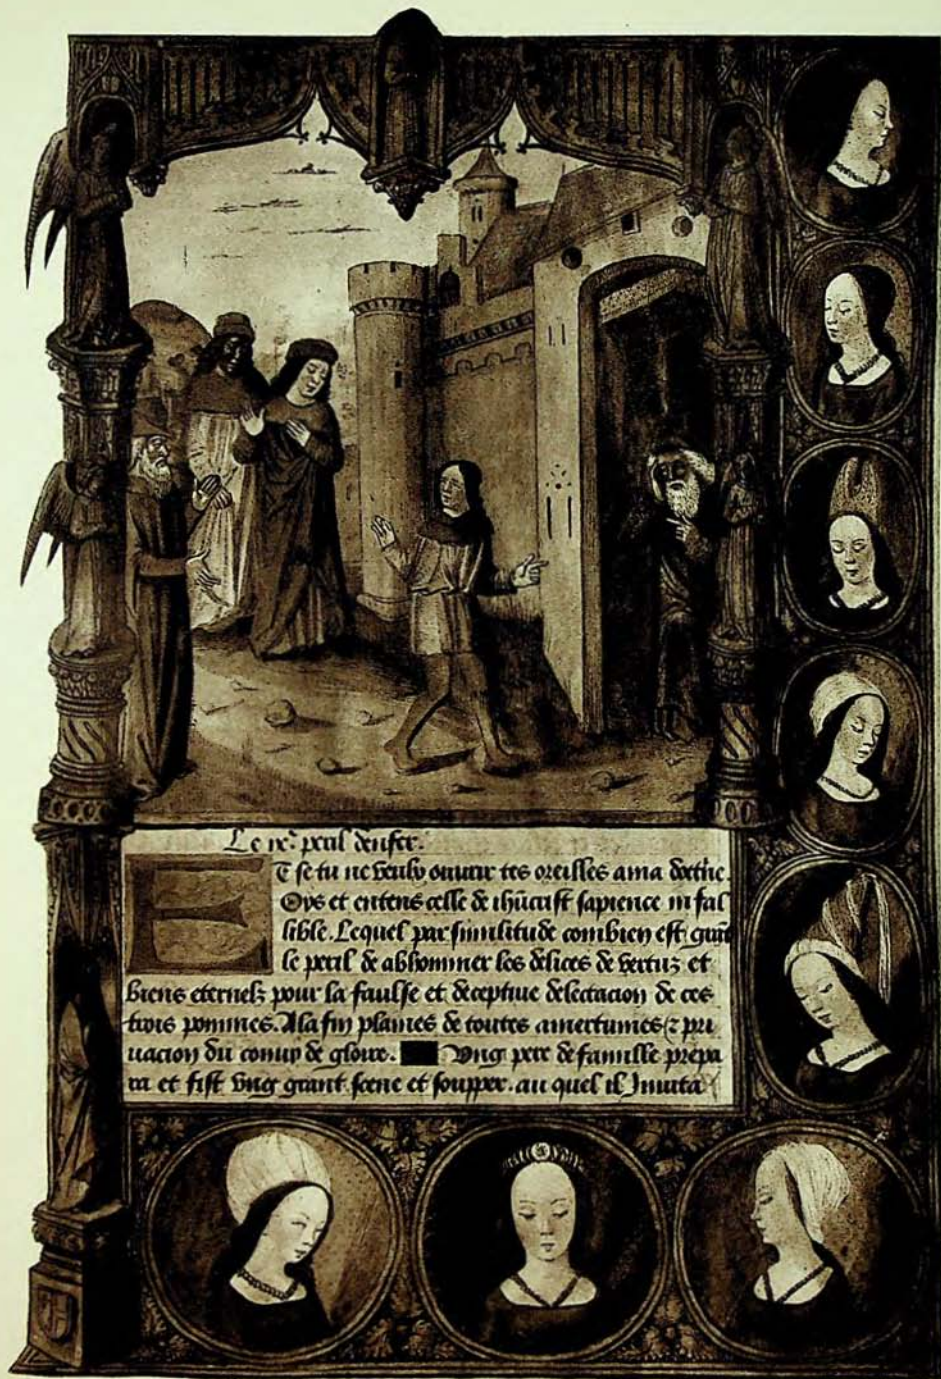 Le ixe peril denfer.
Et se tu ne veulx ouurir tes oreilles a ma doctrine.
Oys et entens celle de ihucrist sapience in fal
lible. Lequel par similitude combien est grant
le peril de abhominer les delices de vertuz et
biens eternelz pour la faulse et deceptiue delectacion de ces
trois pommes. A la fin plaines de toutes amertumes & pri
uacion du conuiy de gloire. Ung pere de famille prepa
ra et fist vng grant scene et soupper. au quel il Inuita